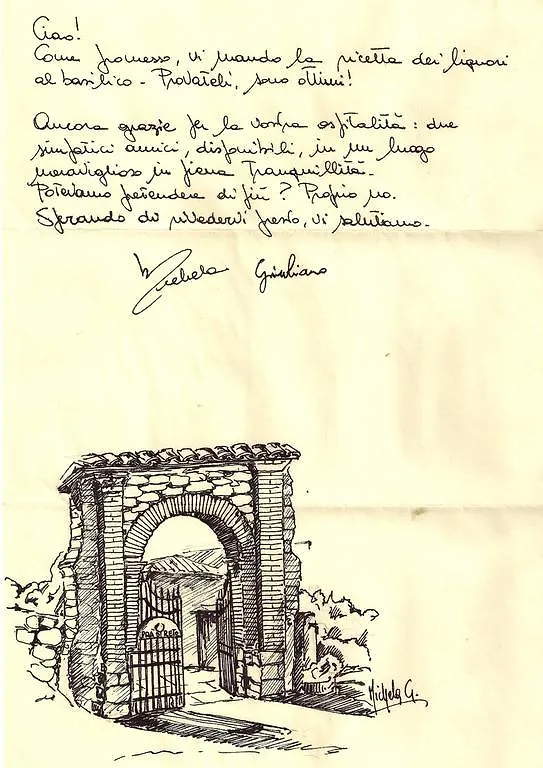 Ciao!
Come promesso, vi mando la ricetta dei liquori
al basilico - Provateli, sono ottimi!
Ancora grazie per la vostra ospitalità: due
simpatici amici, disponibili, in un luogo
meraviglioso in piena tranquillità.
Potevamo pretendere di più? Proprio no.
Sperando di rivedervi presto, vi salutiamo.
Michela Giuliano
Michela G.